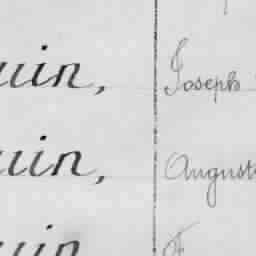 uin, Joseph
uin, August
uin